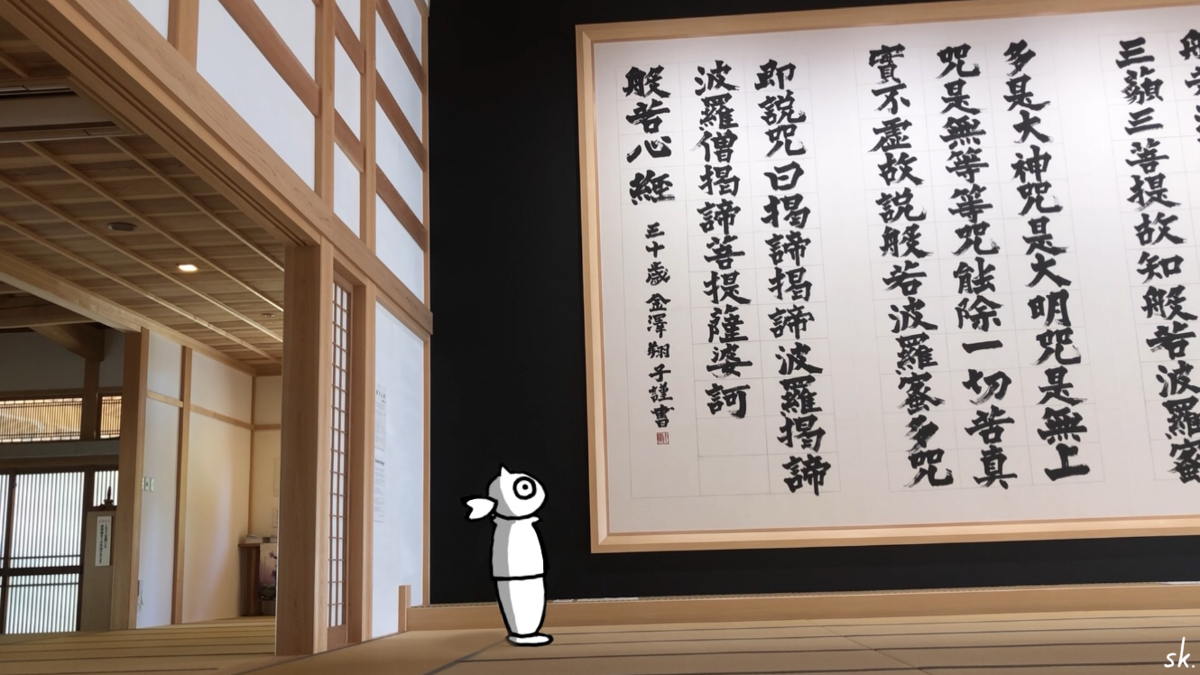 三藐三菩提故知般若波羅蜜
多是大神咒是大明咒是無上
咒是無等等咒能除一切苦真
實不虚故説般若波羅蜜多咒
即説咒曰揭諦揭諦波羅揭諦
波羅僧揭諦菩提薩婆訶
般若心經 三十歳 金澤翔子謹書
sk.